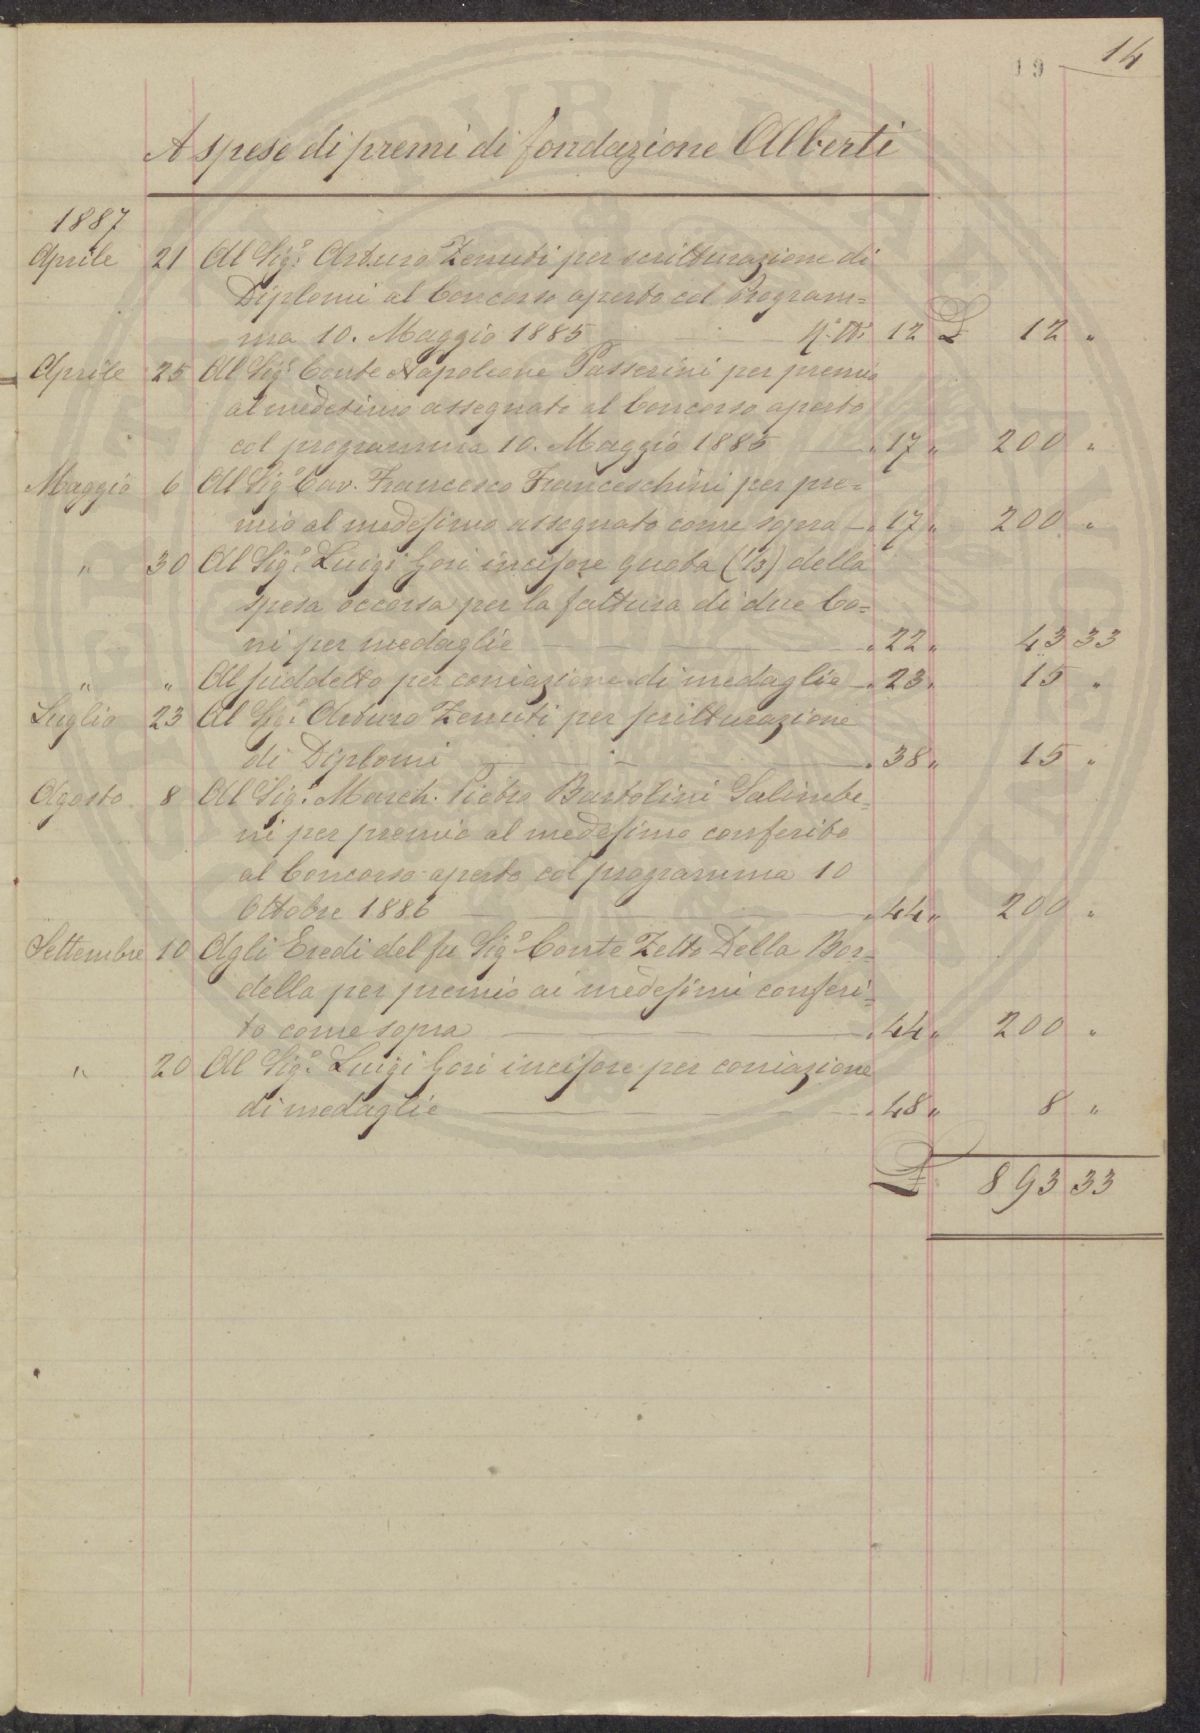 19 14
A spese di premi di fondazione Alberti
1887
Aprile 21 Al Sigr. Arturo Zenuti per scritturazione di
Diplomi al Concorso aperto col Program=
ma 10. Maggio 1885 12 £ 12 "
Aprile 25 Al Sigr. Conte Napoleone Passerini per premio
al medesimo assegnato al Concorso aperto
col programma 10. Maggio 1885 " 17 " 200 "
Maggio 6 Al Sigr Cav. Francesco Franceschini per pre=
mio al medesimo assegnato come sopra " 17 " 200 "
" 30 Al Sigr. Luigi Gori incisore quota (1/3) della
spesa occorsa per la fattura di due Co=
ni per medaglie " 22 " 43 33
" " Al suddetto per coniazione di medaglie " 23 " 15 "
Luglio 23 Al Sigr. Arturo Zenuti per scritturazione
di Diplomi " 38 " 15 "
Agosto 8 Al Sigr. March. Pietro Bartolini Salimbe=
ni per premio al medesimo conferito
al Concorso aperto col programma 10
Ottobre 1886 " 44 " 200 "
Settembre 10 Agli Eredi del fu Sigr Conte Della Bor=
della per premio ai medesimi conferi=
to come sopra " 44 " 200 "
" 20 Al Sigr. Luigi Gori incisore per coniazione
di medaglie " 48 " 8 "
£ 893 33